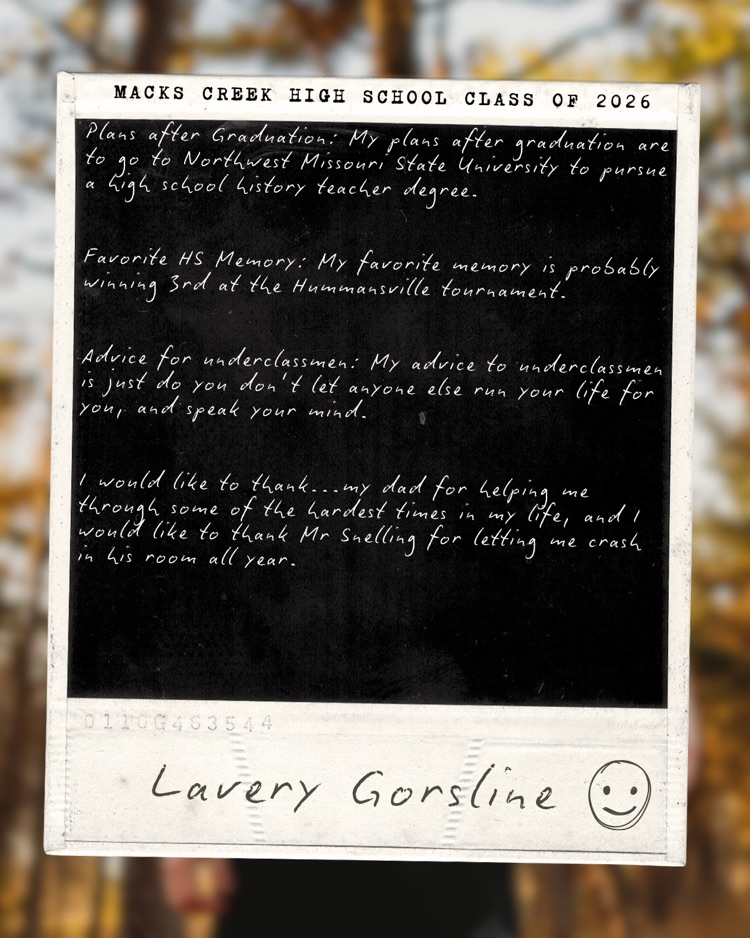 MACKS CREEK HIGH SCHOOL CLASS OF 2026
Plans after Graduation: My plans after graduation are
to go to Northwest Missouri State University to pursue
a high school history teacher degree.
Favorite HS Memory: My favorite memory is probably
winning 3rd at the Hummansville tournament.
Advice for underclassmen: My advice to underclassmen
is just do you don't let anyone else run your life for
you, and speak your mind.
I would like to thank...my dad for helping me
through some of the hardest times in my life, and I
would like to thank Mr Snelling for letting me crash
in his room all year.
0110G463544
Lavery Gorsline